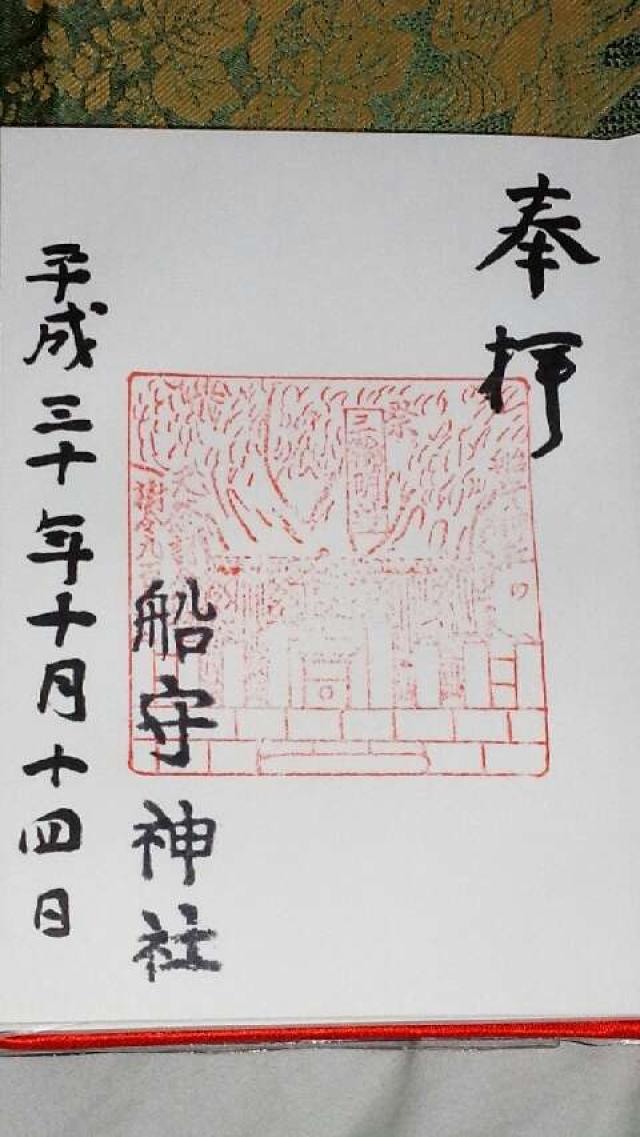 奉拝
船守神社
平成三十年十月十四日